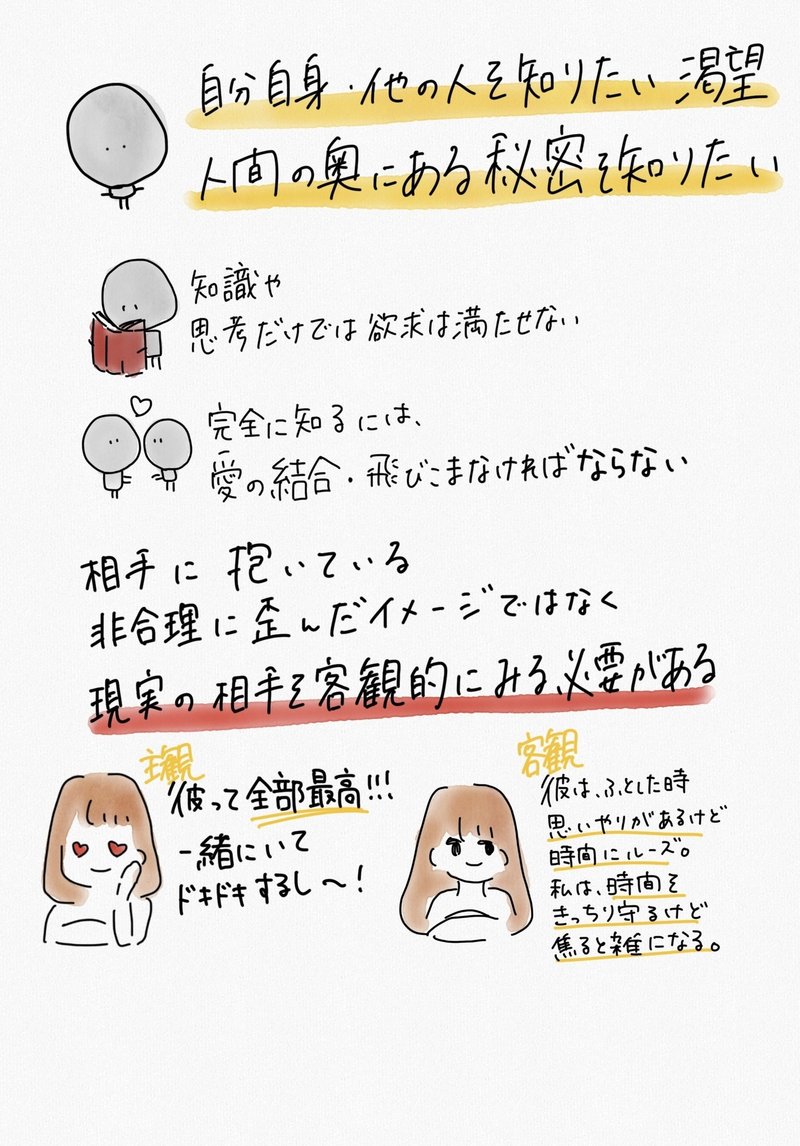 自分自身・他の人を知りたい渇望
人間の奥にある秘密を知りたい
知識や
思考だけでは欲求は満たせない
完全に知るには、
愛の結合・飛びこまなければならない
相手に抱いている
非合理に歪んだイメージではなく
現実の相手を客観的にみる必要がある
主観
彼って全部最高!!!
一緒にいて
ドキドキするし〜!
客観
彼は、ふとした時
思いやりがあるけど
時間にルーズ。
私は、時間を
きっちり守るけど
焦ると雑になる。